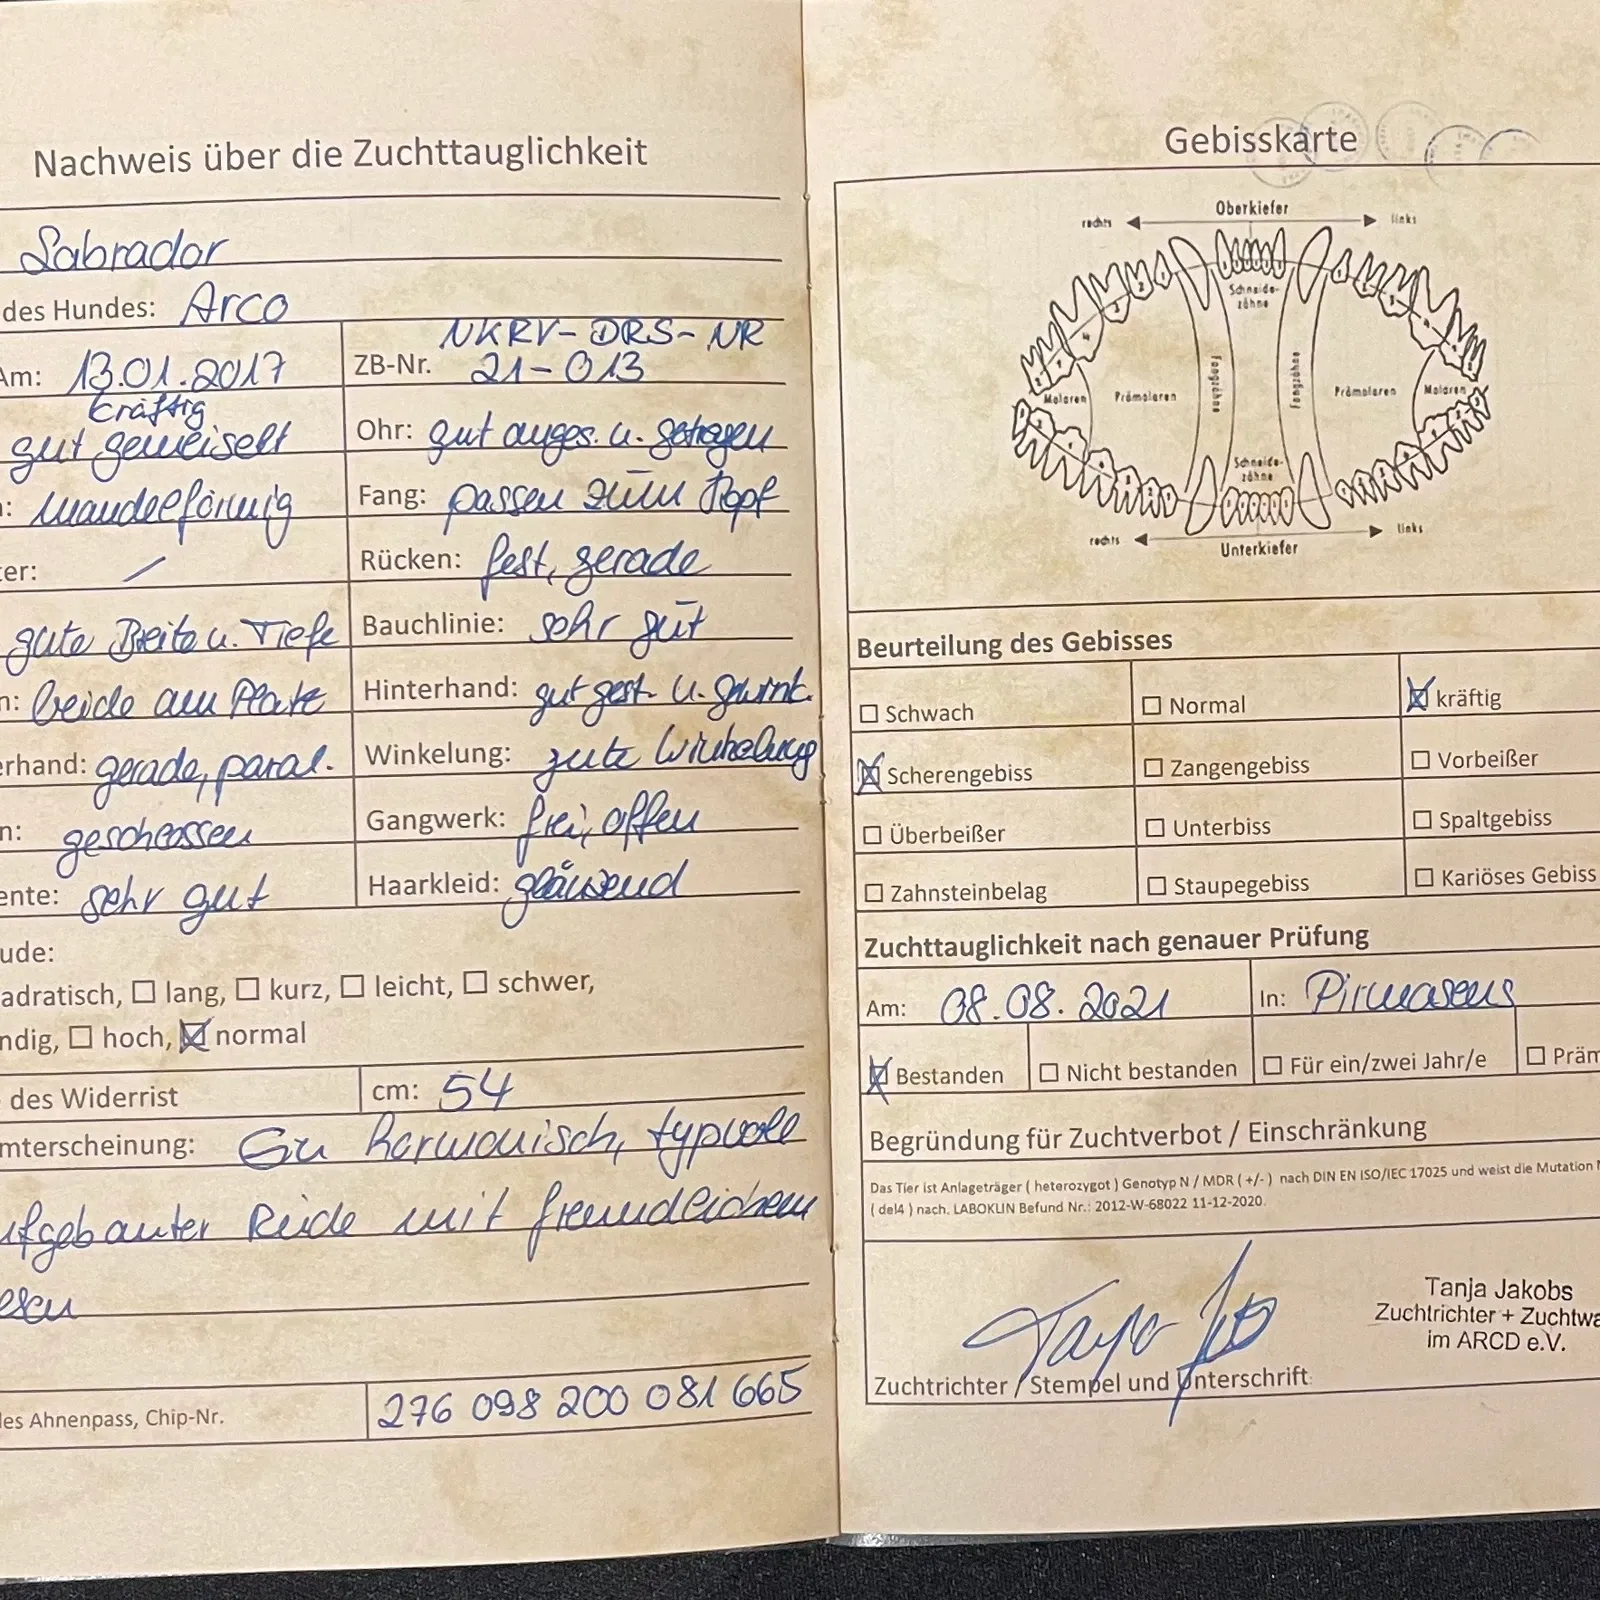 Nachweis über die Zuchttauglichkeit
Labrador
des Hundes: Arco
Am: 13.01.2017
ZB-Nr. NKRV-DRS-NR
21-013
kräftig
gut gemeiselt
Ohr: gut anges. u. getragen
: mandelförmig
Fang: passen zum Kopf
ter: /
Rücken: fest, gerade
gute Breite u. Tiefe
Bauchlinie: sehr gut
n: beide am Platz
Hinterhand: gut gest. u. gewink.
erhand: gerade, paral.
Winkelung: gute Winkelung
n: geschlossen
Gangwerk: frei, offen
ente: sehr gut
Haarkleid: glänzend
ude:
adratisch, ☐ lang, ☐ kurz, ☐ leicht, ☐ schwer,
ndig, ☐ hoch, ☒ normal
des Widerrist
cm: 54
mterscheinung: Ein harmonisch, typvoll
ufgebauter Rüde mit freundlichem
esen
des Ahnenpass, Chip-Nr.
276 098 200 081 665
Gebisskarte
Oberkiefer
rechts
links
Schneide-
zähne
Molaren
Prämolaren
Fangzähne
Fangzähne
Prämolaren
Molaren
Schneide-
zähne
rechts
links
Unterkiefer
Beurteilung des Gebisses
☐ Schwach
☐ Normal
☒ kräftig
☒ Scherengebiss
☐ Zangengebiss
☐ Vorbeißer
☐ Überbeißer
☐ Unterbiss
☐ Spaltgebiss
☐ Zahnsteinbelag
☐ Staupegebiss
☐ Kariöses Gebiss
Zuchttauglichkeit nach genauer Prüfung
Am: 08.08.2021
In: Pirmasens
☒ Bestanden
☐ Nicht bestanden
☐ Für ein/zwei Jahr/e
☐ Präm
Begründung für Zuchtverbot / Einschränkung
Das Tier ist Anlageträger ( heterozygot ) Genotyp N / MDR ( +/- ) nach DIN EN ISO/IEC 17025 und weist die Mutation
( del4 ) nach. LABOKLIN Befund Nr.: 2012-W-68022 11-12-2020.
Tanja Jakobs
Zuchtrichter + Zuchtwa
im ARCD e.V.
Zuchtrichter / Stempel und Unterschrift